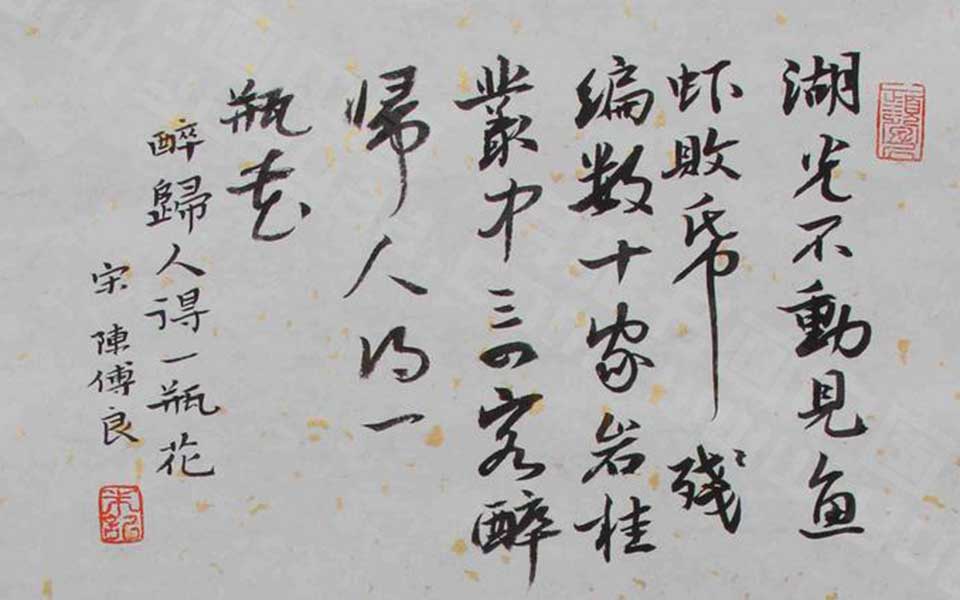 湖光不動見魚
虾敗帋殘
编数十家岩桂
叢中三四客醉
帰人得一
瓶花
醉歸人得一瓶花
宋 陳傅良